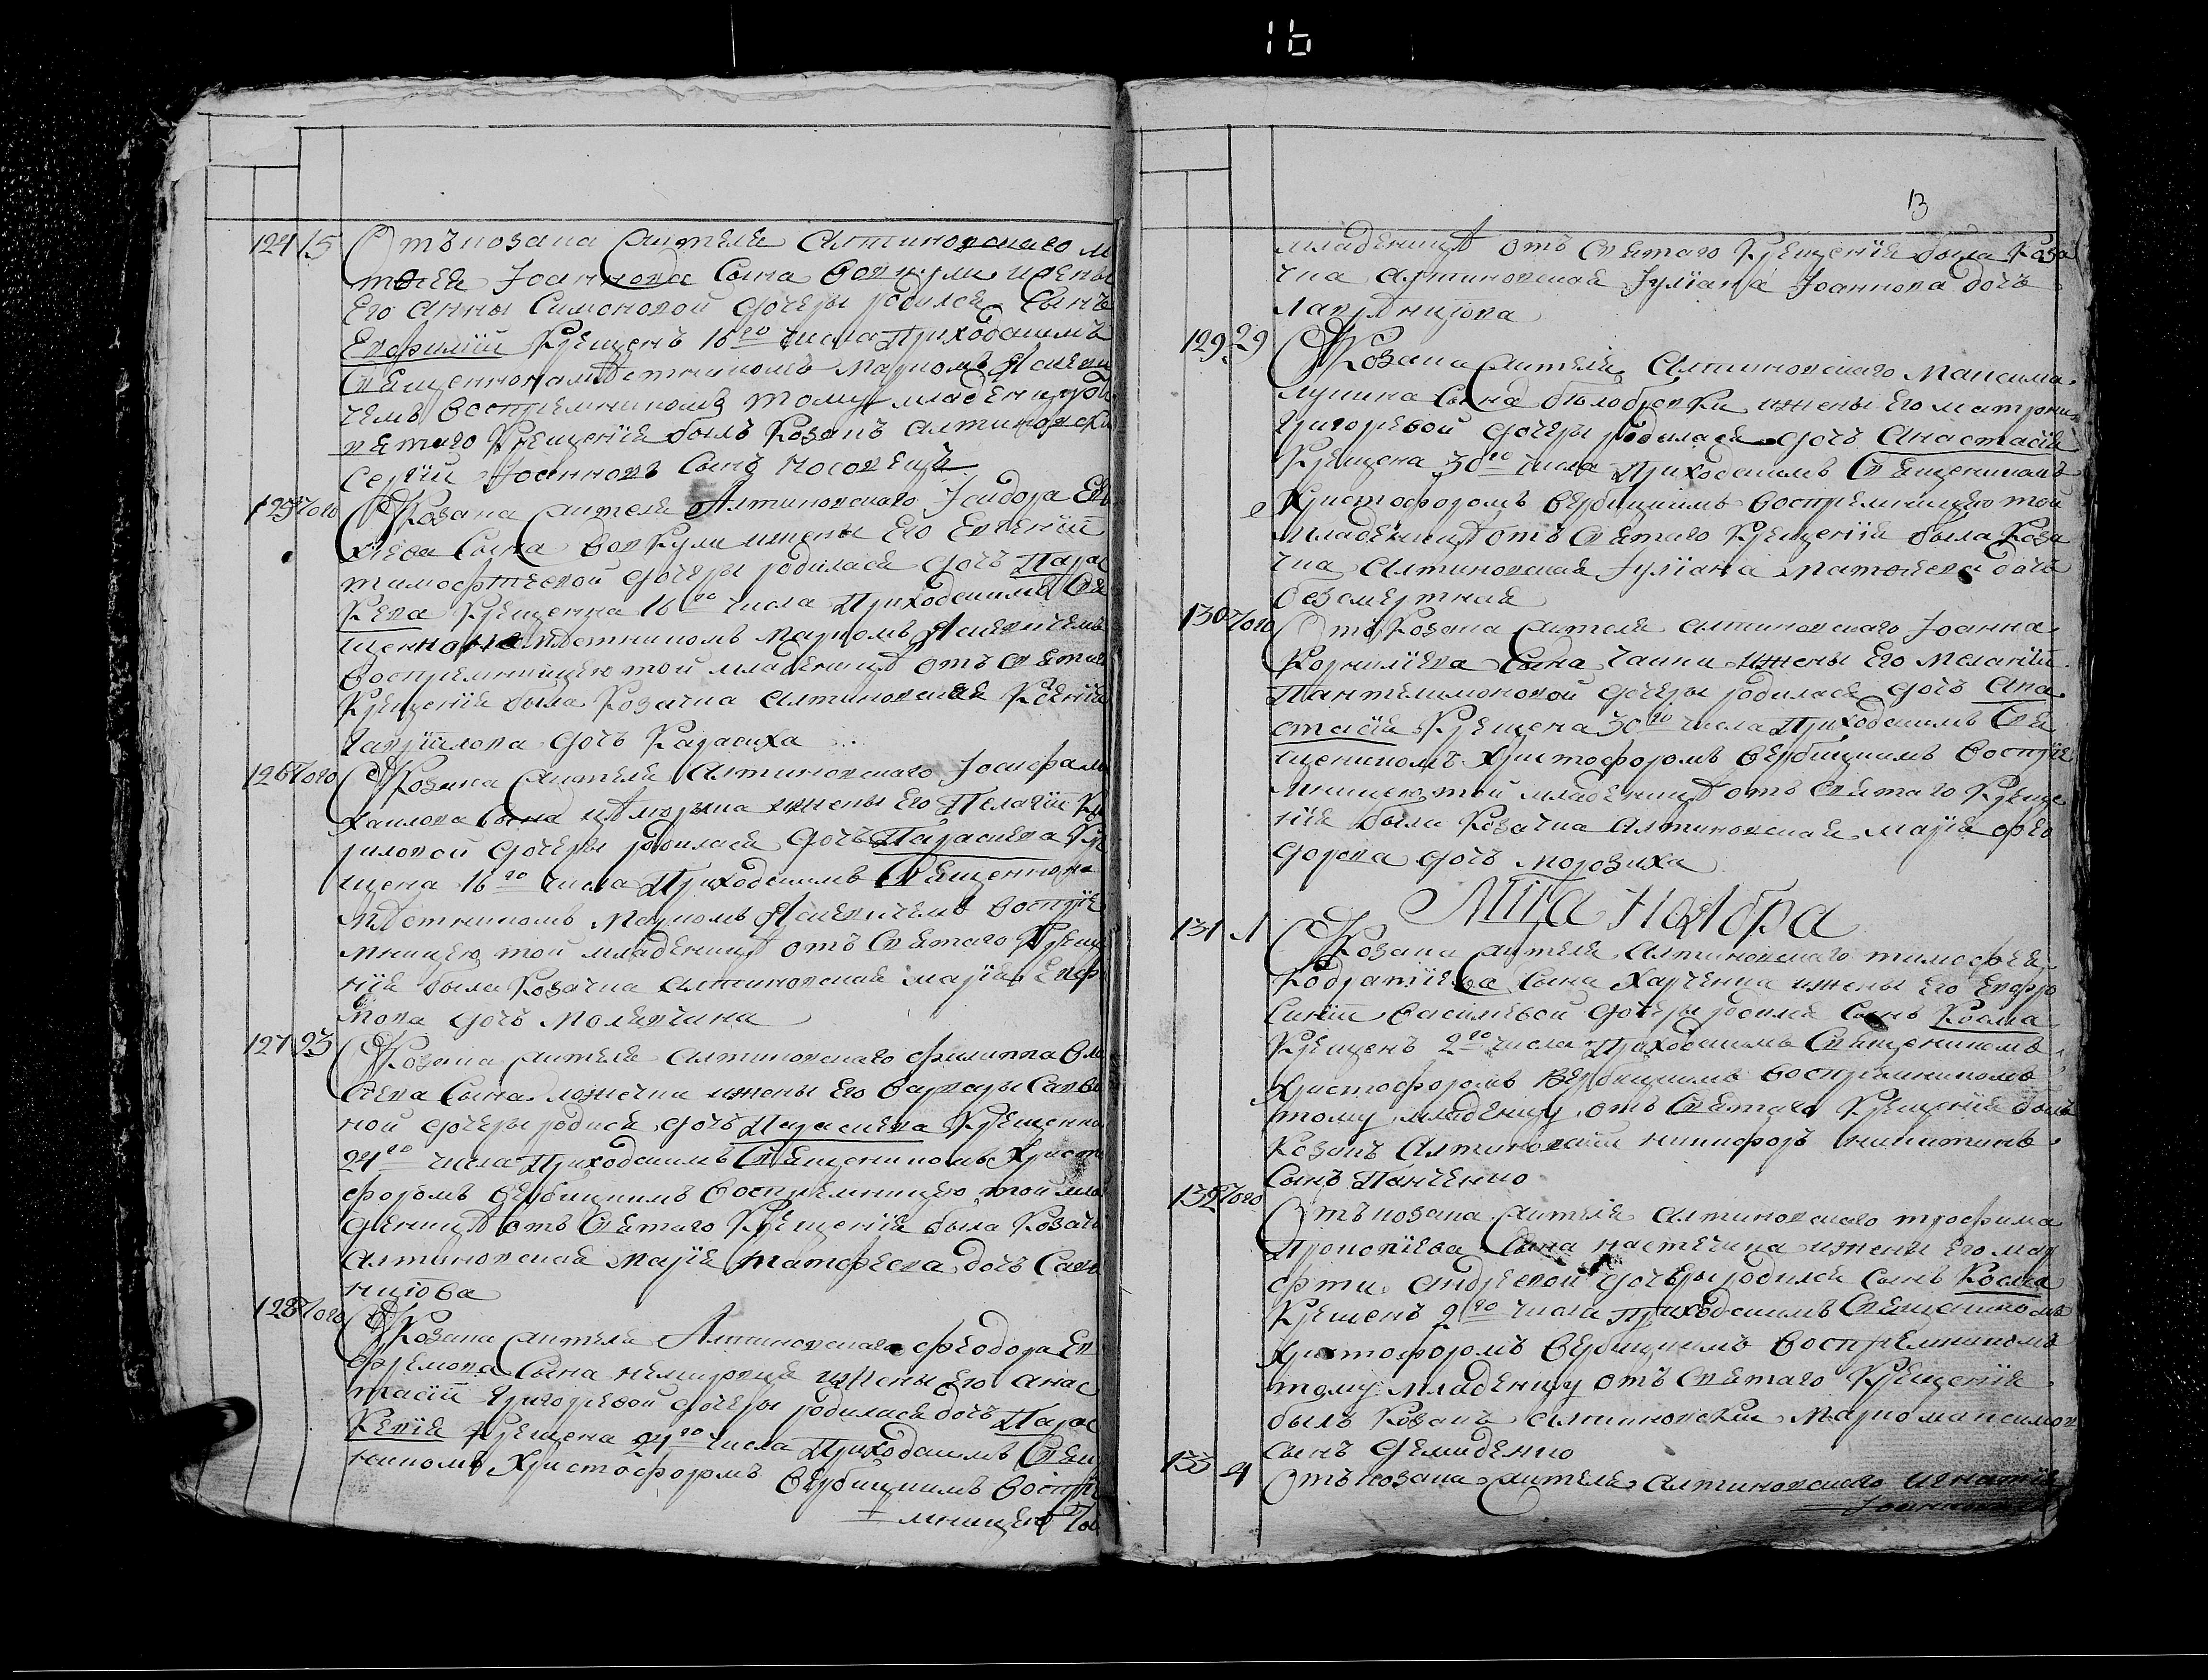 16
13
124 15 Отъ козака жителя Алтиновскаго М
тѳея Іоаннова сына Вовкули и жены
его Анны Симоновой дочеры родился сынъ
Евфимій крещенъ 16го числа приходскимъ
священнонамѣстникомъ Маркомъ
чемъ воспріемникомъ тому младенцу
вятаго крещенія былъ козакъ Алтиновски
Сергій Іоанновъ сынъ Носовецъ
125 того Козака жителя Алтиновскаго Ісидора
сына Вовкули и жены его Евгеніи
Тимофѣевой дочеры родилася дочь Парас
кева крещенна 16го числа приходскимъ свя
щеннонамѣстникомъ Маркомъ
воспріемницею той младеницѣ отъ святаго
крещенія была козачка Алтиновская Ксенія
Гавріилова дочь Карасиха
126 того Козака жителя Алтиновскаго Іосифа Ми
хаилова сына и жены его Пелагіи Ки
риловой дочеры родилася дочь Параскева кре
щена 16го числа приходскимъ священнона
мѣстникомъ Маркомъ воспріе
мницею той младеницѣ отъ святаго креще
нія была козачка Алтиновская Марія
мова дочь
127 23 Козака жителя Алтиновскаго Филиппа Вла
сіева сына Ложечки и жены его Варвары Савви
ной дочеры родися дочь Параскева крещенна
24го числа приходскимъ священникомъ Христо
форомъ Вербицкимъ воспріемницею той мла
деницѣ отъ святаго крещенія была козачк
Алтиновская Марія Матѳеева дочь
128 того Козака жителя Алтиновскаго Феодора Ев
фремова сына и жены его Анас
тасіи Григоревой дочеры родилася дочь Парас
кевія крещена 24го числа приходскимъ свящ
нникомъ Христофоромъ Вербицкимъ воспріе
мницею той
младеницѣ отъ святаго крещенія была коза
чка Алтиновская Іуліана Іоаннова дочь
129 29 Козака жителя Алтиновскаго Максима
Лукина сына Бѣлобровки и жены его Матроны
Григоревой дочеры родилася дочь Анастасія
крещена 30го числа приходскимъ священникомъ
Христофоромъ Вербицкимъ воспріемницею той
младеницѣ отъ святаго крещенія была коза
чка Алтиновская Іуліана Матѳеева дочь
Безсмертная
130 того Отъ козака жителя Алтиновскаго Іоанна
Корниліева сына Чайки и жены его Меланіи
Пантелимоновой дочеры родилася дочь Ана
стасія крещена 30го числа приходскимъ свя
щеникомъ Христофоромъ Вербицкимъ воспріе
мницею той младеницѣ отъ святаго креще
нія была козачка Алтиновская Марія Фео
дорова дочь Морозиха
Мца Ноября
131 1 Козака жителя Алтиновскаго Тимофея
Кодратіева сына Харченка и жены его Евфро
синіи Василевой дочеры родился сынъ Косма
крещенъ 2го числа приходскимъ священникомъ
Христофоромъ Вербицкимъ воспріемникомъ
тому младенцу отъ святаго крещенія былъ
козакъ Алтиновскій Никифоръ Никитинъ
сынъ Панченко
132 того Отъ козака жителя Алтиновскаго Трофима
Прокопіева сына и жены его Мар
фи Андреевой дочеры родился сынъ Косма
крещенъ 2го числа приходскимъ священникомъ
Христофоромъ Вербицкимъ воспріемникомъ
тому младенцу отъ святаго крещенія
былъ козакъ Алтиновскій Марко Максимов
сынъ Демиденко
133 4 Отъ козака жителя Алтиновскаго Игнатія
Іоаннова